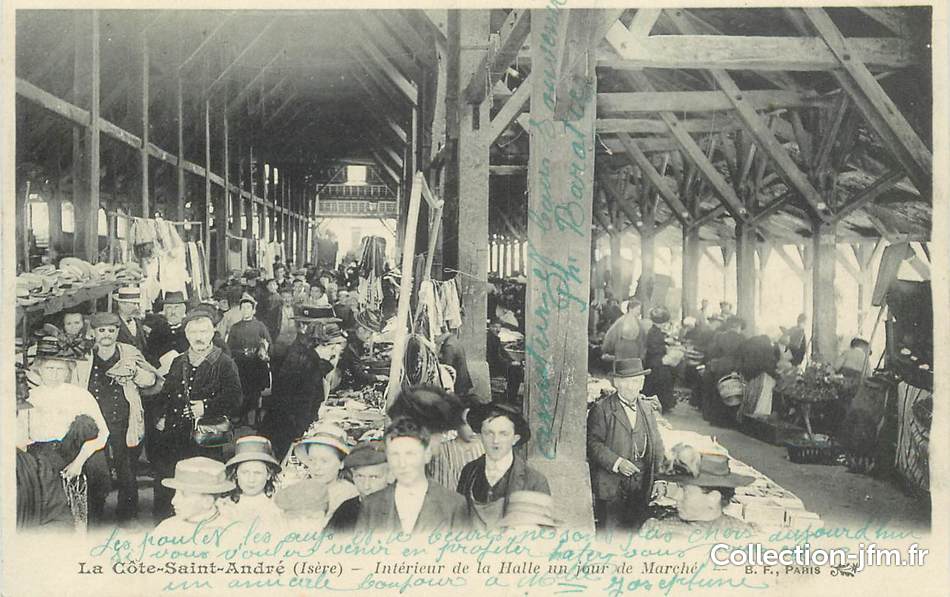 amateur et bon souvenir
Ph. Baratte
Les poulet les oeufs et le beurre ne sont pas chers aujourd'hui
si vous voulez venir en profiter hatez vous
La Côte-Saint-André (Isère) - Intérieur de la Halle un jour de Marché - B. F., PARIS
un amicale bonjour a Mme Josephine
Collection-jfm.fr